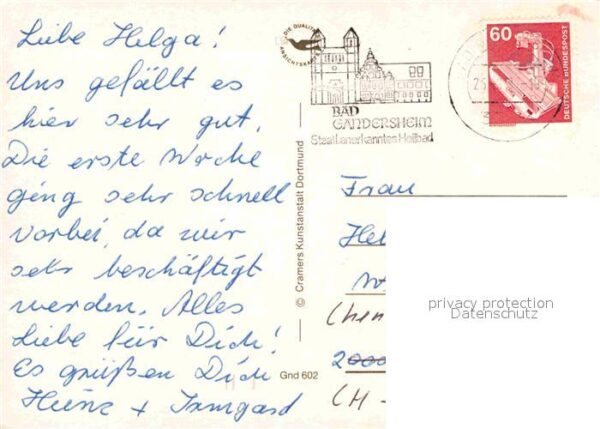 Liebe Helga!
Uns gefällt es
hier sehr gut.
Die erste Woche
ging sehr schnell
vorbei, da wir
sehr beschäftigt
werden. Alles
Liebe für Dich!
Es grüßen Dich
Heinz + Irmgard
© Cramers Kunstanstalt Dortmund
Gnd 602
DIE QUALITÄTS
ANSICHTSKARTE
BAD
GANDERSHEIM
Staatl. anerkanntes Heilbad
60
DEUTSCHE BUNDESPOST
Frau
Hel
2000
(H -
privacy protection
Datenschutz